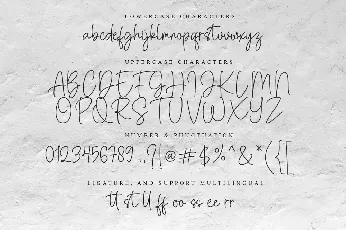 LOWERCASE CHARACTERS
abcdefghijklmnopqrstuvwxyz
UPPERCASE CHARACTERS
ABCDEFGHIJKLMN
OPQRSTUVWXYZ
NUMBER & PUNCTUATION
0123456789.,?!@#$%^&*({[
LIGATURE, AND SUPPORT MULTILINGUAL
tt st ll ff oo ss ee rr